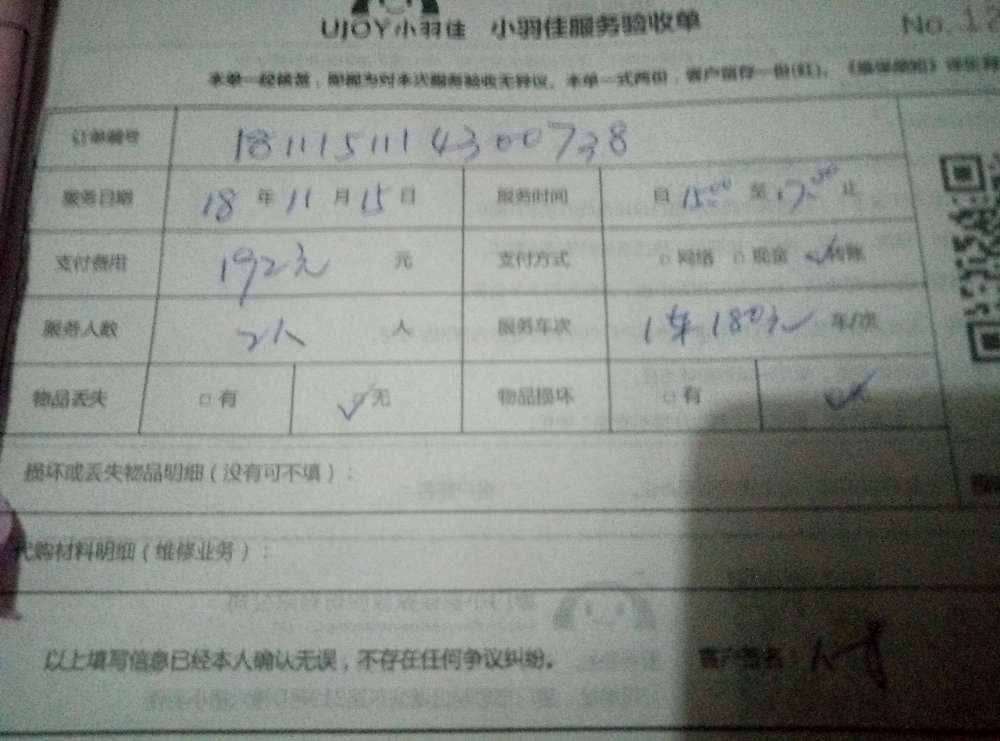 UJOY小羽佳 小羽佳服务验收单 No.12
本单一经签签，即视为对本次服务验收无异议。本单一式两份，客户留存一份(红)。
订单编号 1811151114300738
服务日期 18 年 11 月 15 日 服务时间 自 15:00 至 17:00 止
支付费用 192元 元 支付方式 □ 网络 □ 现金 ✓转账
服务人数 2人 人 服务车次 1车180元 车/次
物品丢失 □ 有 ✓无 物品损坏 □ 有 ✓
损坏或丢失物品明细（没有可不填）：
代购材料明细（维修业务）：
以上填写信息已经本人确认无误，不存在任何争议纠纷。 客户签名：